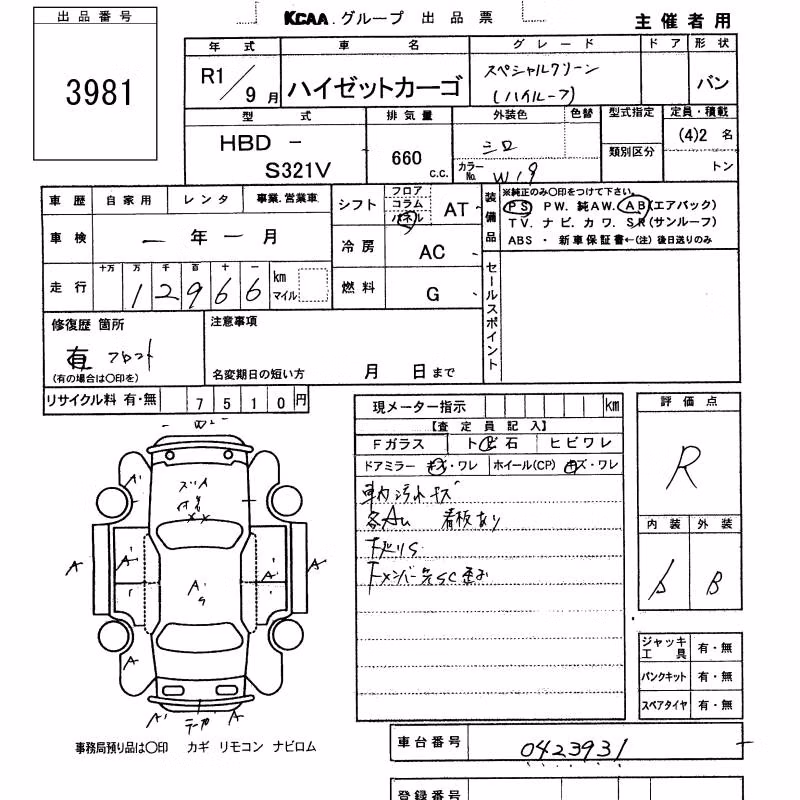 KCAA グループ 出品票 主催者用
出品番号
3981
年式 車名 グレード ドア 形状
R1/9月 ハイゼットカーゴ スペシャルクリーン (ハイルーフ) バン
型式 排気量 外装色 色替 型式指定 定員・積載
HBD - S321V 660 c.c. シロ (4)2 名
カラーNo. W19 類別区分 トン
車歴 自家用 レンタ 事業.営業車
シフト フロア コラム パネル AT
装備品 ※純正のみ〇印をつけて下さい。
PS PW. 純AW. AB(エアバック)
TV. ナビ. カワ. SR(サンルーフ)
ABS ・ 新車保証書←(注) 後日送りのみ
車検 ー 年 ー 月
冷房 AC
走行 十万 万 千 百 十 一
12966 km マイル
燃料 G
セールスポイント
修復歴 箇所
有 フロント
(有の場合は〇印を)
注意事項
名変期日の短い方 月 日まで
リサイクル料 有・無 7510円
現メーター指示 km
評価点
R
【査定員記入】
Fガラス トビ石 ヒビワレ
ドアミラー キズ・ワレ ホイール(CP) キズ・ワレ
車内汚れキズ
各AU 看板あり
F廻りS
Fメンバー先SC歪み
内装 外装
B
A' A A' A' A A
A' S
A
A' A
ジャッキ工具 有・無
パンクキット 有・無
スペアタイヤ 有・無
車台番号 0423931
事務局預り品は〇印 カギ リモコン ナビロム
登録番号